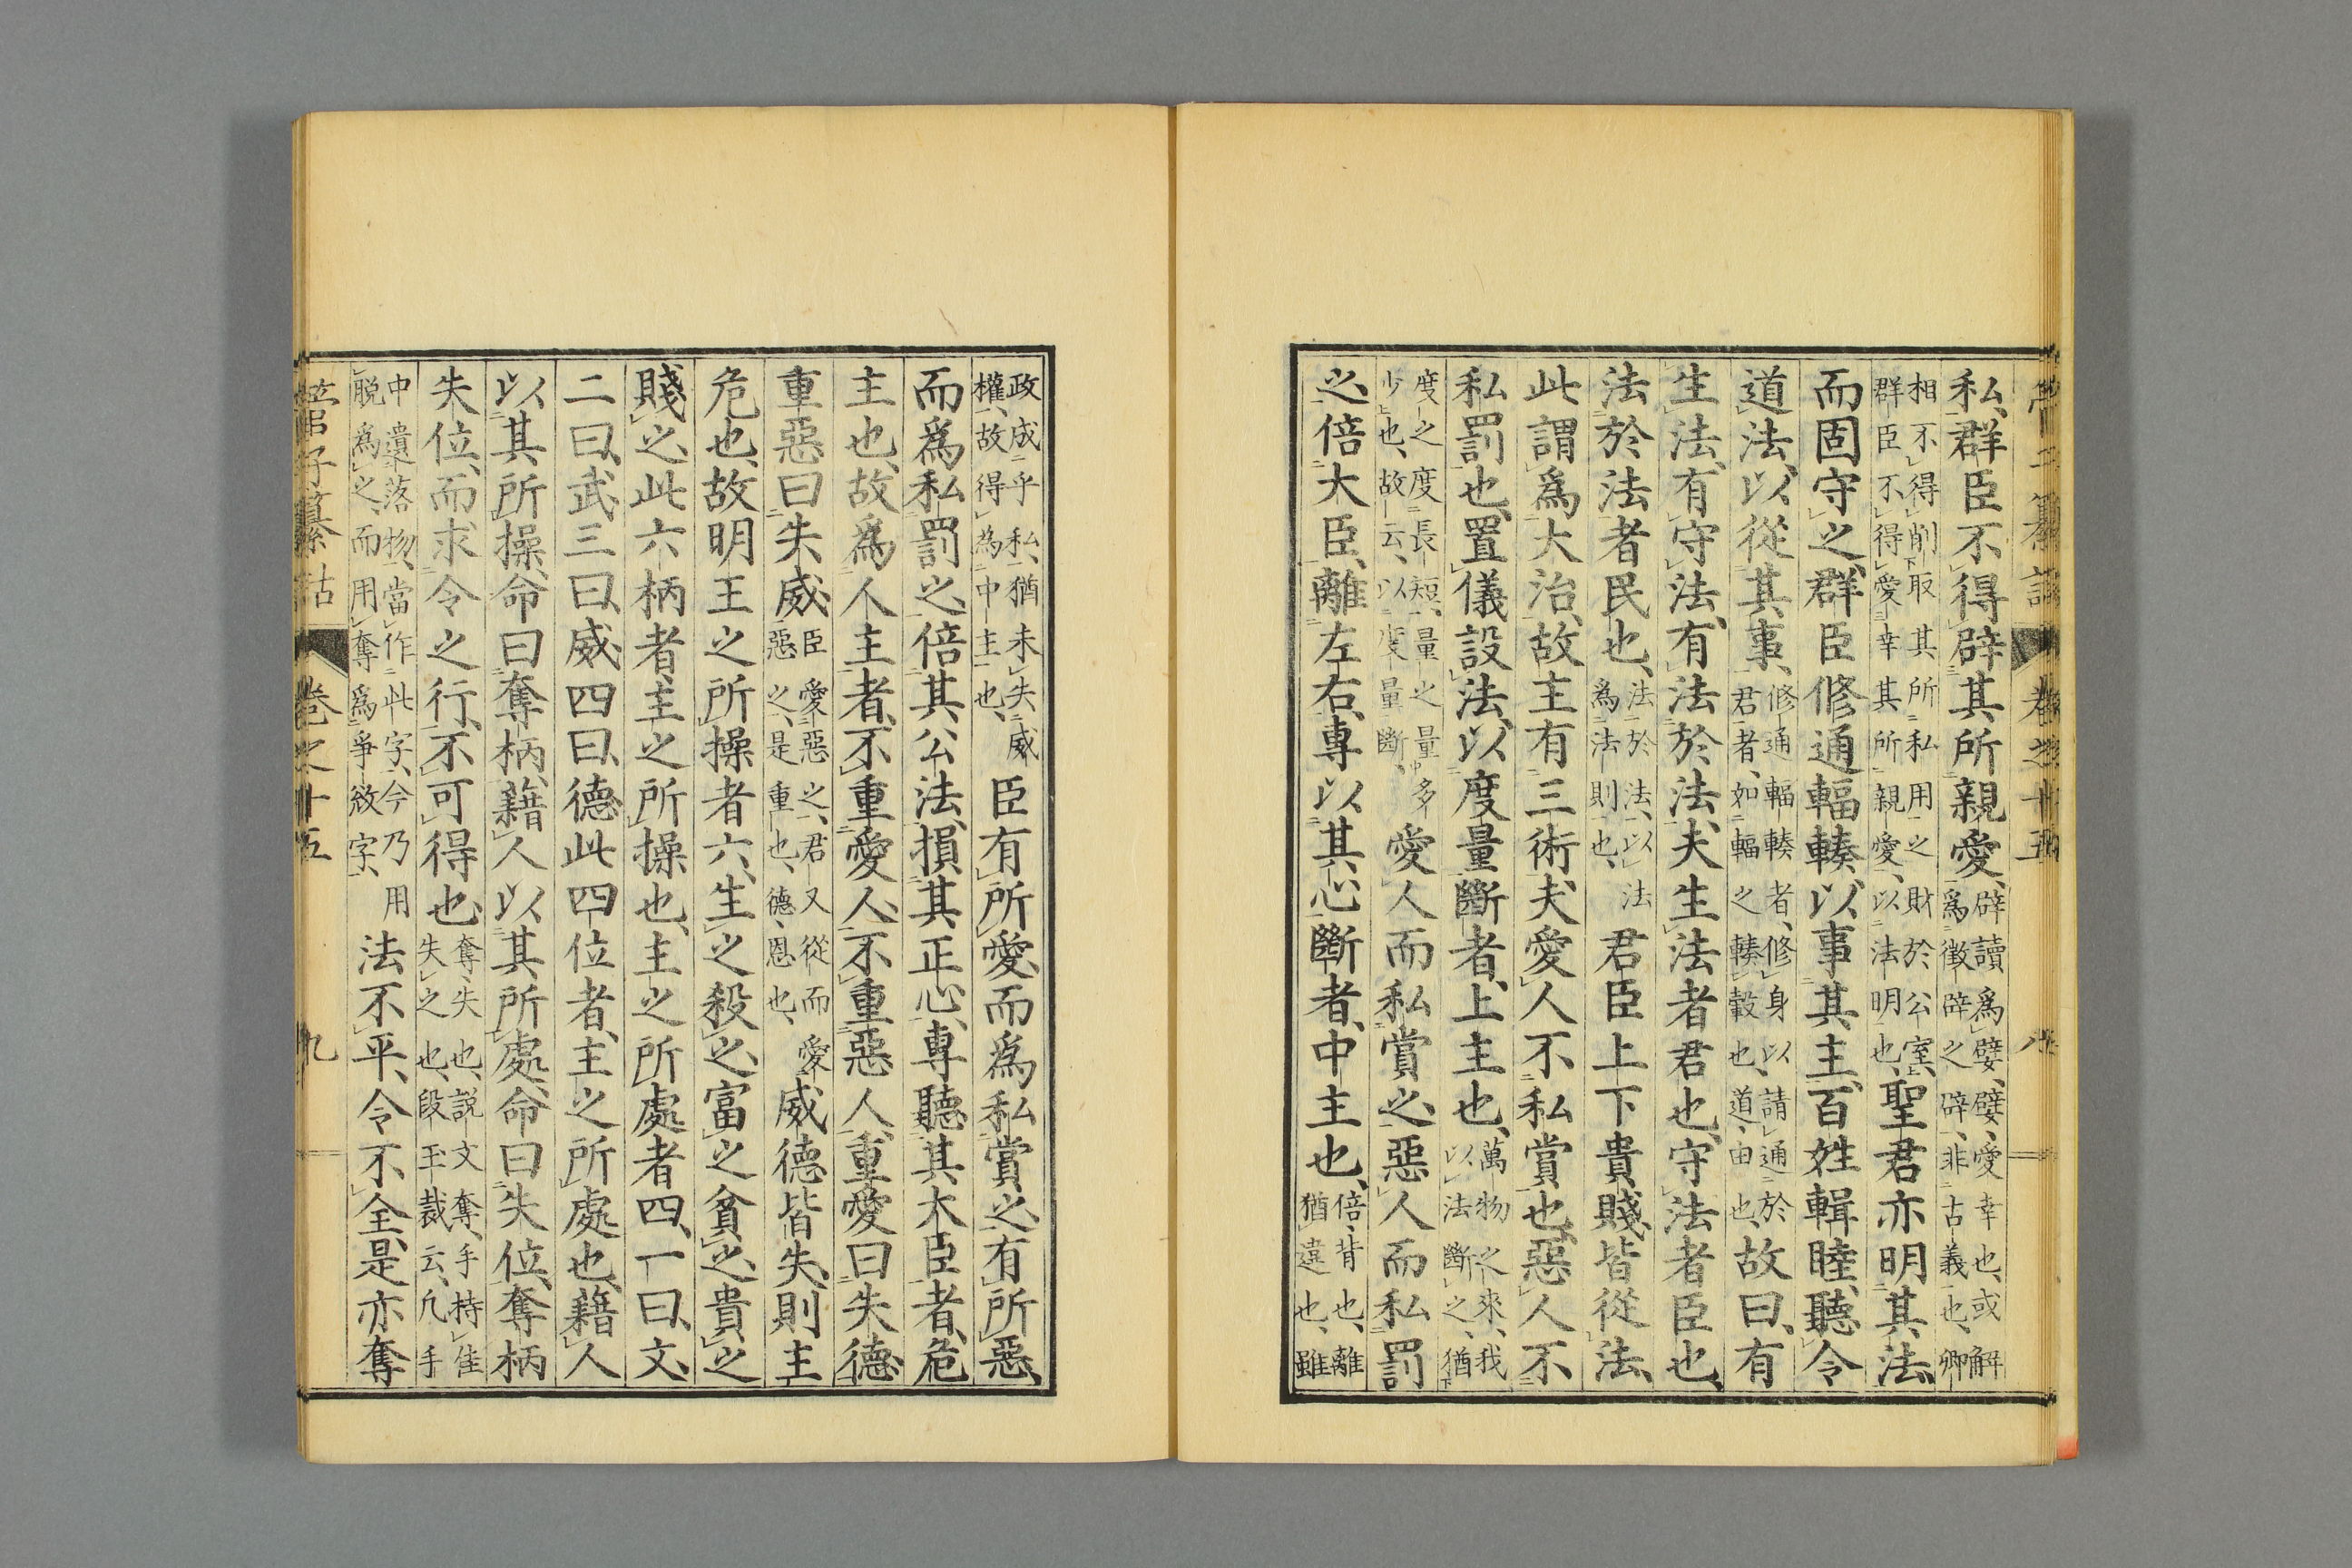 管子纂詁 卷之十五 八
私、群臣不得辟其所親愛、辟讀爲嬖、嬖、愛幸也、或解
爲徵辟之辟、非古義也、卿
相不得削取其所私用之財於公室、
群臣不得愛幸其所親愛、以法明也、聖君亦明其法
而固守之、群臣修通輻輳、以事其主、百姓輯睦、聽令
道法、以從其事、修通輻輳者、修身以請通於
君者、如輻之輳轂也、道、由也、故曰、有
生法、有守法、有法於法、夫生法者君也、守法者臣也、
法於法者民也、法於法、以法
爲法則也、君臣上下貴賤、皆從法、
此謂爲大治、故主有三術、夫愛人不私賞也、惡人不
私罰也、置儀設法、以度量斷者、上主也、萬物之來、我
以法斷之、猶
度之度長短、量之量多
少也、故云、以度量斷、愛人而私賞之、惡人而私罰
之、倍大臣、離左右、專以其心斷者、中主也、倍、背也、離
猶違也、雖
政成乎私、猶未失威
權、故得爲中主也、臣有所愛、而爲私賞之、有所惡、
而爲私罰之、倍其公法、損其正心、專聽其大臣者、危
主也、故爲人主者、不重愛人、不重惡人、重愛曰失德、
重惡曰失威、臣愛惡之、君又從而愛
惡之、是重也、德、恩也、威德皆失、則主
危也、故明王之所操者六、生之、殺之、富之、貧之、貴之、
賤之、此六柄者、主之所操也、主之所處者四、一曰、文、
二曰、武、三曰、威、四曰、德、此四位者、主之所處也、籍人
以其所操、命曰奪柄、籍人以其所處、命曰失位、奪柄
失位、而求令之行、不可得也、奪、失也、説文、奪、手持隹
失之也、段玉裁云、凡手
中遺落物、當作此字、今乃用
脱爲之、而用奪爲爭敓字、法不平、令不全、是亦奪
管子纂詁 卷之十五 九